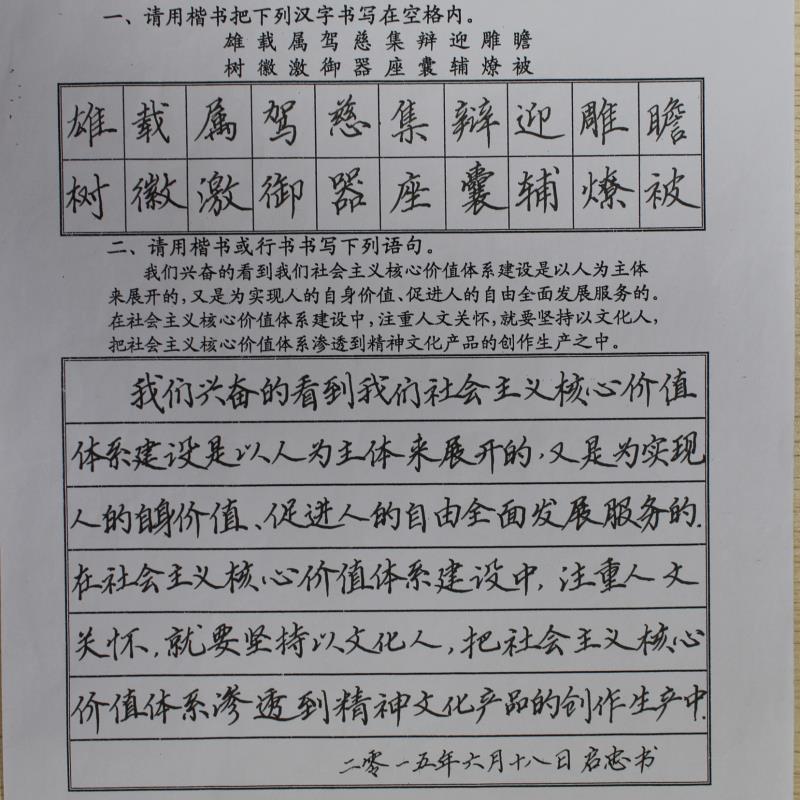 一、请用楷书把下列汉字书写在空格内。
雄载属驾慈集辩迎雕瞻
树徽激御器座囊辅燎被
雄载属驾慈集辩迎雕瞻
树徽激御器座囊辅燎被
二、请用楷书或行书书写下列语句。
我们兴奋的看到我们社会主义核心价值体系建设是以人为主体
来展开的，又是为实现人的自身价值、促进人的自由全面发展服务的。
在社会主义核心价值体系建设中，注重人文关怀，就要坚持以文化人，
把社会主义核心价值体系渗透到精神文化产品的创作生产之中。
我们兴奋的看到我们社会主义核心价值
体系建设是以人为主体来展开的，又是为实现
人的自身价值、促进人的自由全面发展服务的.
在社会主义核心价值体系建设中，注重人文
关怀，就要坚持以文化人，把社会主义核心
价值体系渗透到精神文化产品的创作生产中.
二零一五年六月十八日启忠书